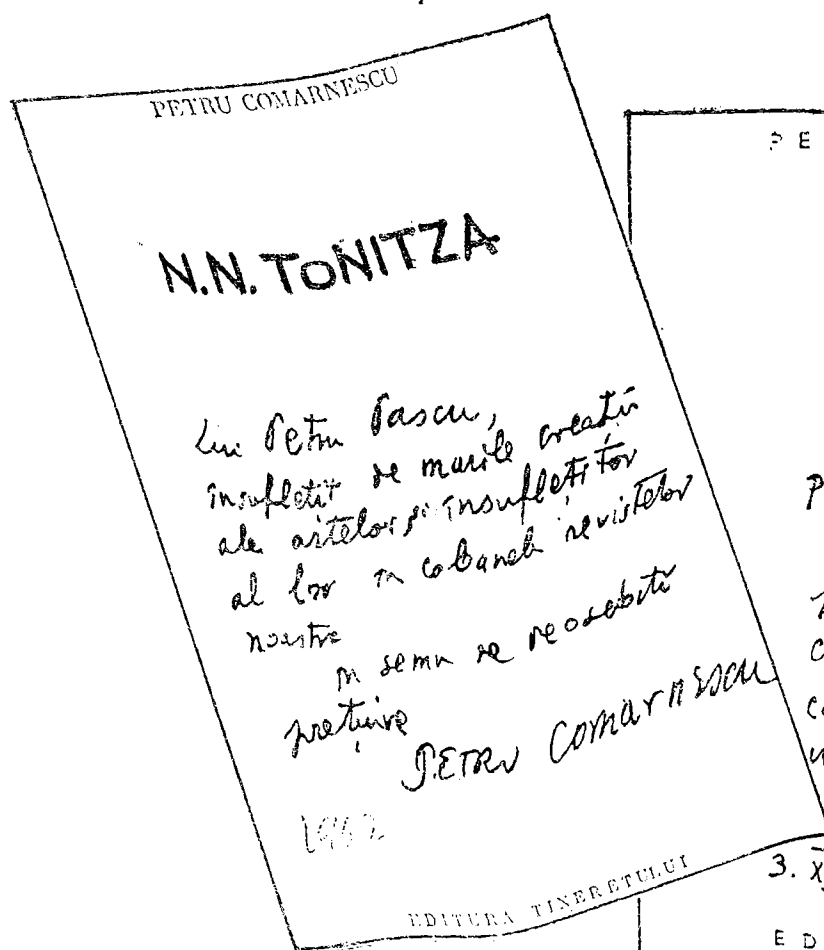 PETRU COMARNESCU
N.N. TONITZA
Lui Petru Pascu,
însuflețit de marile creații
ale artelor și însuflețitor
al lor în coloanele revistelor
noastre
în semn de deosebită
prețuire
PETRU COMARNESCU
1962
EDITURA TINERETULUI
P E
P
3. X
E D